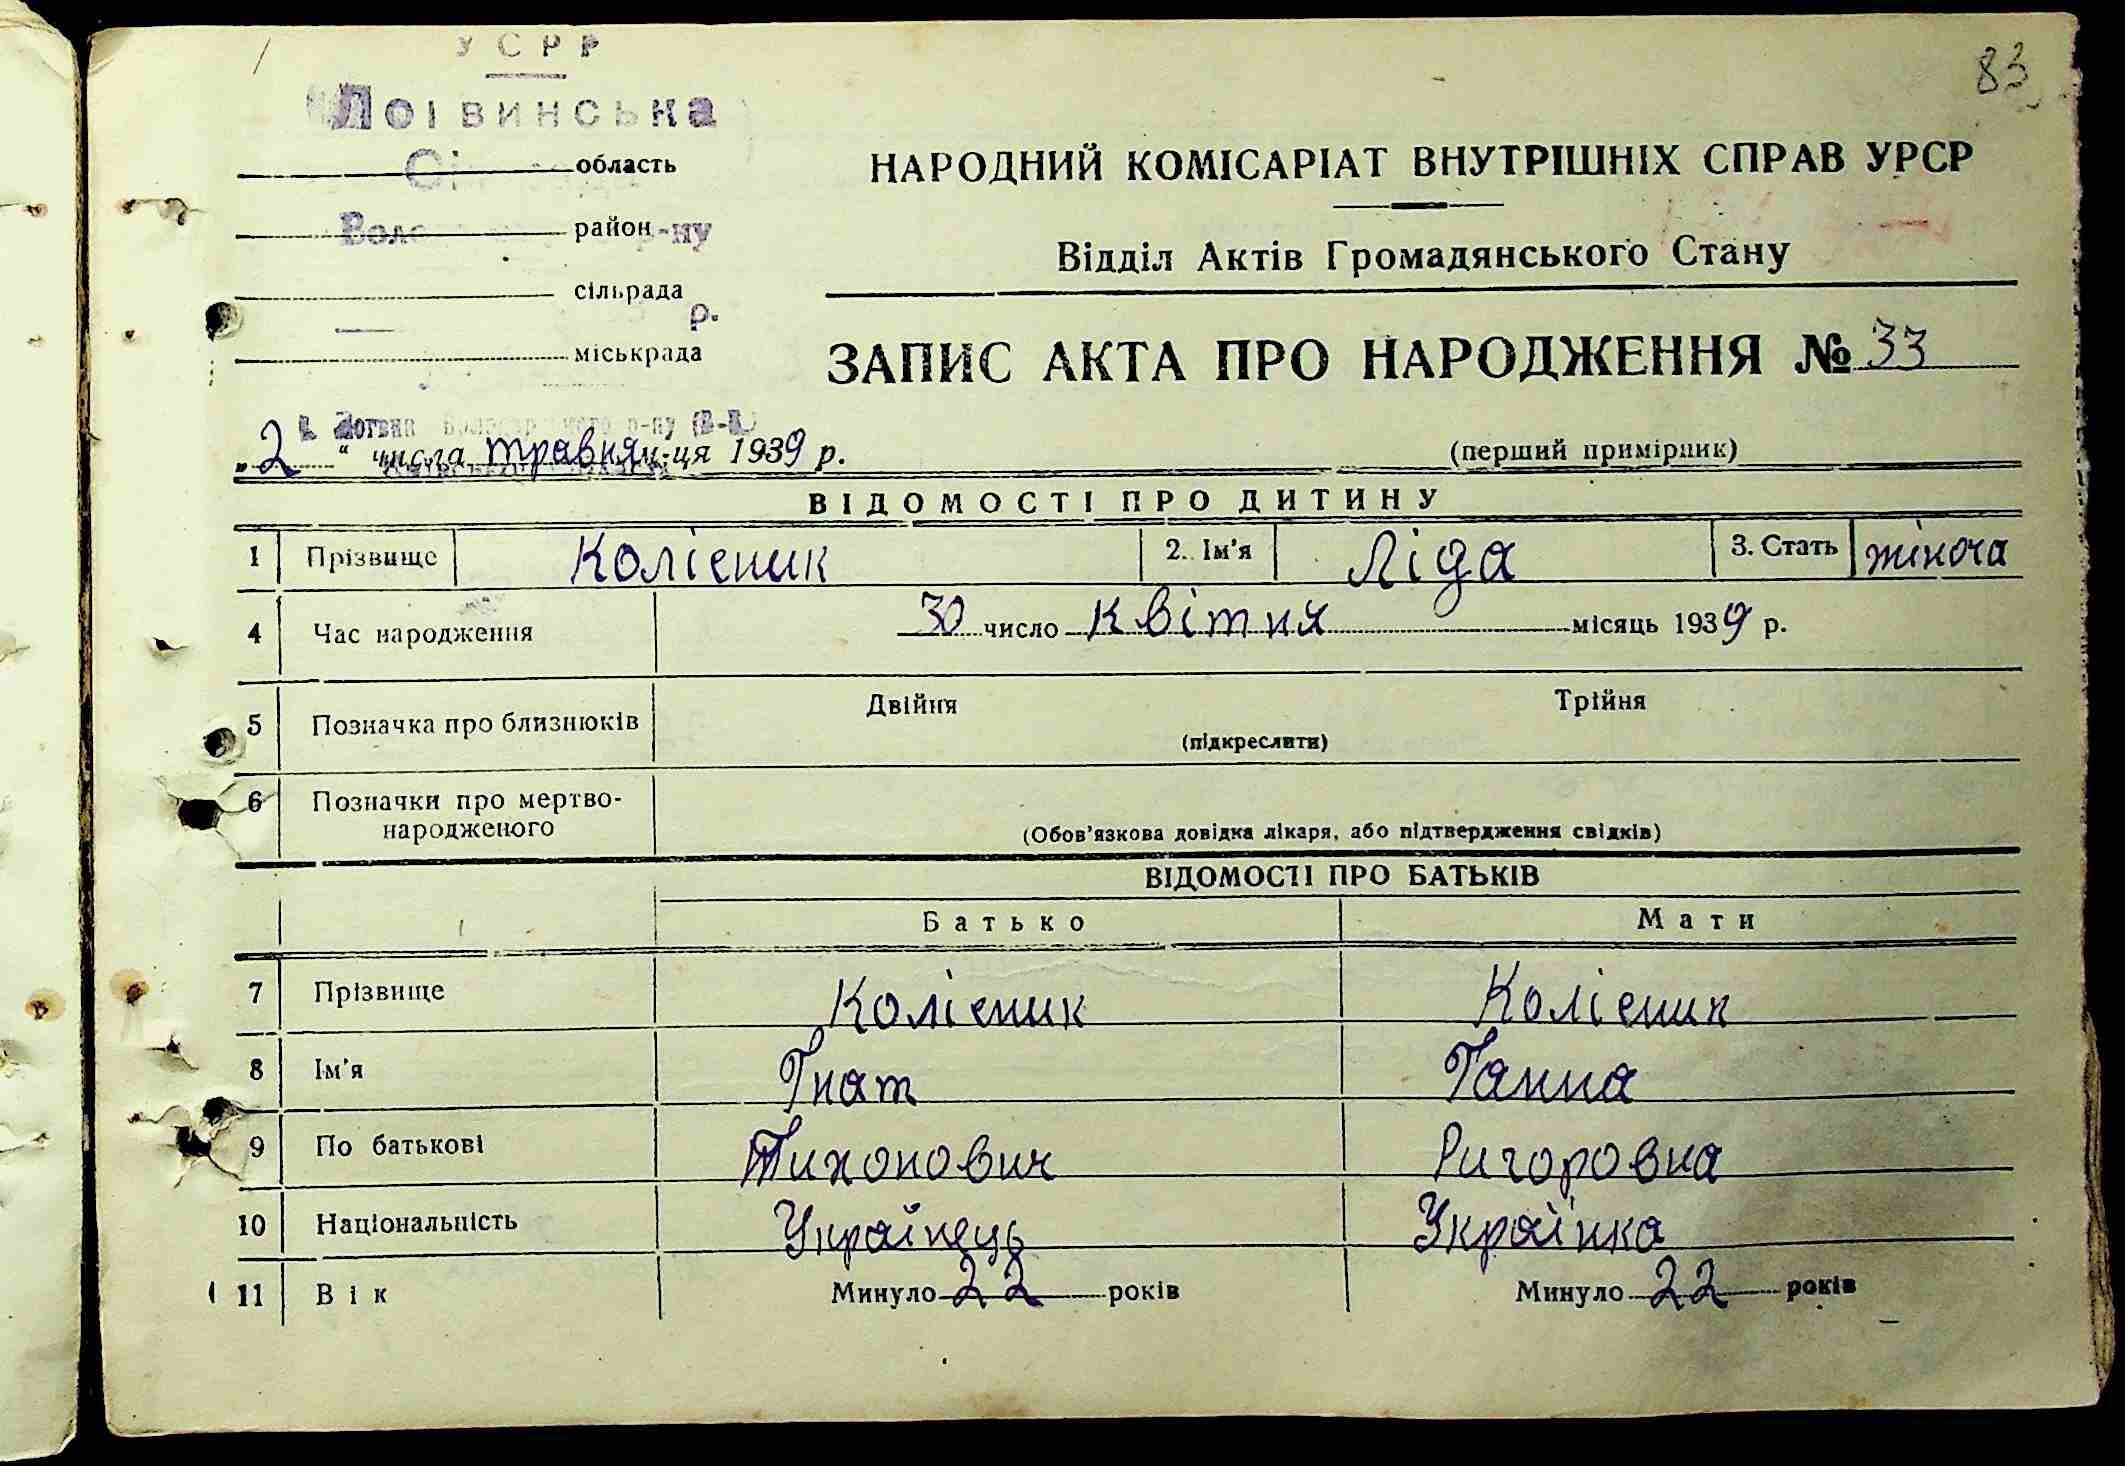 83
УСРР
Логвинська
область
НАРОДНИЙ КОМІСАРІАТ ВНУТРІШНІХ СПРАВ УРСР
район р-ну
Відділ Актів Громадянського Стану
сільрада
р.
міськрада
ЗАПИС АКТА ПРО НАРОДЖЕННЯ № 33
„2“ числа травня м-ця 1939 р.
(перший примірник)
ВІДОМОСТІ ПРО ДИТИНУ
1 Прізвище Колісник 2. Ім'я Ліда 3. Стать жіноча
4 Час народження 30 число Квітня місяць 1939 р.
5 Позначка про близнюків Двійня Трійня
(підкреслити)
6 Позначки про мертво-
народженого
(Обов'язкова довідка лікаря, або підтвердження свідків)
ВІДОМОСТІ ПРО БАТЬКІВ
Батько Мати
7 Прізвище Колісник Колісник
8 Ім'я Гнат Ганна
9 По батькові Тихонович Ригоровна
10 Національність Українець Українка
11 Вік Минуло 22 років Минуло 22 років